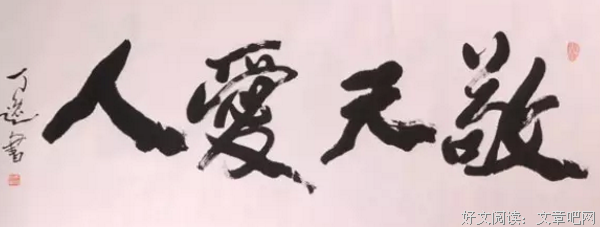 敬天愛人
丁 書
好文阅读：文章吧网